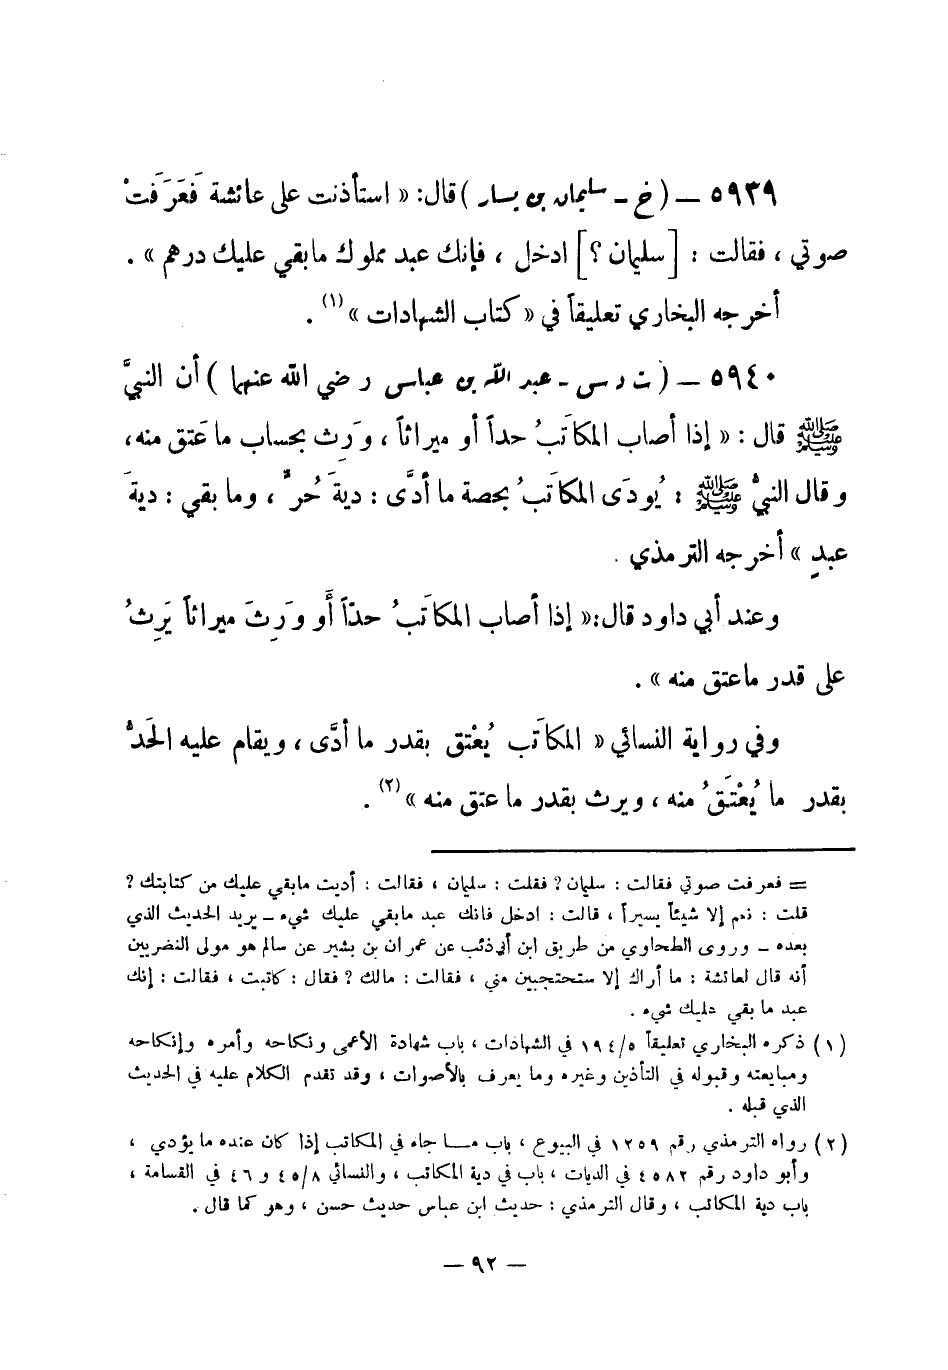 ٥٩٣٩ — ( خ - سليمان بن يسار ) قال: « استأذنت على عائشة فَعَرَفَتْ
صوتي ، فقالت : [ سليمان ؟ ] ادخل ، فإنك عبد مملوك مابقي عليك درهم » .
أخرجه البخاري تعليقاً في « كتاب الشهادات » (١) .
٥٩٤٠ — ( ت د س - عبد الله بن عباس رضي الله عنهما ) أن النبيَّ
ﷺ قال : « إذا أصاب المكاتَبُ حداً أو ميراثاً ، وَرِث بحساب ما عَتق منه،
وقال النبيُّ ﷺ : يُودَى المكاتَبُ بحصة ما أدَّى : ديةَ حُرٍّ ، وما بقي : ديةَ
عبدٍ » أخرجه الترمذي .
وعند أبي داود قال:« إذا أصاب المكاتَبُ حدّاً أَو وَرِثَ ميراثاً يَرِثُ
على قدر ماعتق منه » .
وفي رواية النسائي « المكاتَب يُعْتق بقدر ما أدَّى ، ويقام عليه الحَدُّ
بقدر ما يُعْتَقُ منه ، ويرث بقدر ما عتق منه » (٢) .
= فعرفت صوتي فقالت : سليمان ? فقلت : سليمان ، فقالت : أديت مابقي عليك من كتابتك ?
قلت : نعم إلا شيئاً يسيراً ، قالت : ادخل فانك عبد مابقي عليك شيء - يريد الحديث الذي
بعده - وروى الطحاوي من طريق ابن أبي ذئب عن عمران بن بشير عن سالم هو مولى النضريين
أنه قال لعائشة : ما أراك إلا ستحتجبين مني ، فقالت : مالك ? فقال : كاتبت ، فقالت : إنك
عبد ما بقي عليك شيء .
(١) ذكره البخاري تعليقاً ١٩٤/٥ في الشهادات ، باب شهادة الأعمى ونكاحه وأمره وإنكاحه
ومبايعته وقبوله في التأذين وغيره وما يعرف بالأصوات ، وقد تقدم الكلام عليه في الحديث
الذي قبله .
(٢) رواه الترمذي رقم ١٢٥٩ في البيوع ، باب مـا جاء في المكاتب إذا كان عنده ما يؤدي ،
وأبو داود رقم ٤٥٨٢ في الديات ، باب في دية المكاتب ، والنسائي ٤٥/٨ و ٤٦ في القسامة ،
باب دية المكاتب ، وقال الترمذي : حديث ابن عباس حديث حسن ، وهو كما قال .
— ٩٢ —